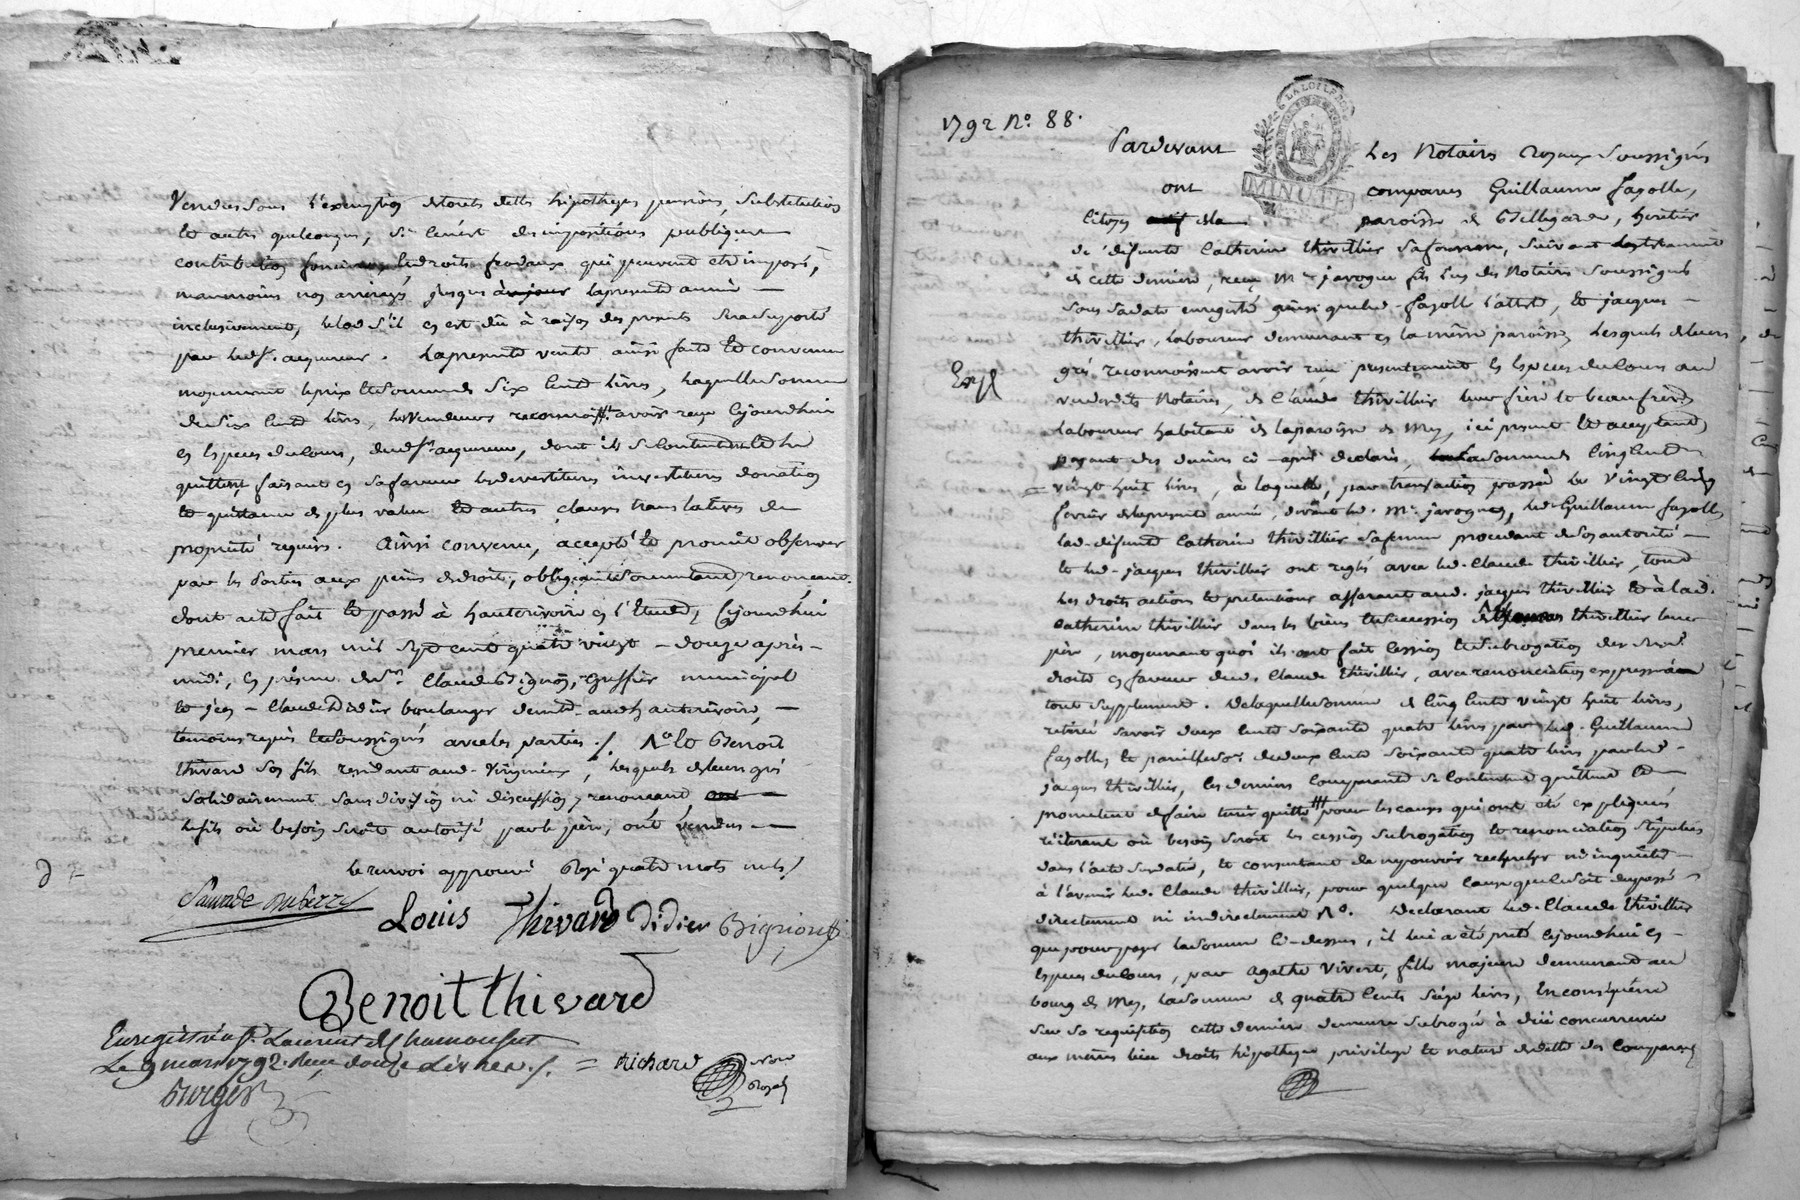 Vendus sous l'exemption de toutes dettes hipotheques pensions, substitution
et autres quelconques, si ce n'est des impositions publiques
contribution fonciere, les droits feodaux qui peuvent etre imposé,
neanmoins nos arrerages jusques à la presente année
inclusivement, le lod s'il en est dû à raison des presents sera supporté
par led. sr. acquereur. La presente vente ainsi faite et convenue
moyennant le prix et somme de six cents livres, laquelle somme
de six cents livres, les Vendeurs reconnoissent avoir reçu cejourdhui
en especes de cours, dud. sr. acquereur, dont ils se contentent et le
quittent, faisant en sa faveur les devestitures investitures donation
et quittance de plus value et autres clauses translatives de
proprieté requises. Ainsi convenu, accepté et promit observer
par les parties aux peines de droits, obligeant soumettant, renonceant.
dont acte fait et passé à hauterivoire en l'Etude, Cejourdhui
premier mars mil sept cent quatre vingt - douze après -
midi, en présence de sr. Claude Pignon, Greffier municipal
et jean - Claude Didier boulanger demt. aud. hauterivoire, -
temoins requis et soussignés avec les parties ./. No. et Benoit
thivard son fils residant aud. Virignieux, lesquels de leurs gré
solidairement sans division ni discussion y renonceant,
le fils où besoin seroit autorisé par le père, ont vendus
le renvoi approuvé Rayé quatre mots nuls /
Louis Thivard Didier Bignion
Benoit thivard
Enregistré a St. Laurent de Chamousset
Le 9 mars 1792. Reçu douze Livres ./. = Richard Nore
Royal
Burger
1792 No. 88.
Pardevant Les Notaires Royaux Soussignés
ont comparus Guillaume fayolle,
Citoyen de la paroisse de Bellegarde, heritier
de defunte Catherine thivillier sa femme, suivant le testament
de cette derniere, reçu Me. jarogue fils l'un des Notaires soussignés
sous sa date enregistré ainsi que led. fayolle l'atteste, et jacques
thivillier, laboureur demeurant en la même paroisse, lesquels de leurs
Exp
grés reconnoissent avoir reçu presentement en especes de cours au
vu desdits Notaires, de Claude thivillier leur frere et beau frere
laboureur habitant de la paroisse de Mey, ici present et acceptant
payant des deniers ci-après declarés, la somme de Cinq Cents
vingt huit livres, à laquelle, par transaction passée le Vingt Cinq
fevrier de la presente année, devant led. Me. jarogue, led. Guillaume fayolle
lad. defunte Catherine thivillier sa femme procedant de son autorité
et led. jacques thivillier ont reglé avec led. Claude thivillier, tous
les droits actions et pretentions afferant aud. jacques thivillier et à lad.
Catherine thivillier dans les biens et succession de thivillier leur
père, moyennant quoi ils ont fait cession et subrogation des mêmes
droits en faveur dud. Claude thivillier, avec renonciation expresse à
tout supplement. De laquelle somme de Cinq Cents Vingt huit livres,
retirée savoir deux cents soixante quatre livres par led. Guillaume
fayolle, et pareille so. de deux cents soixante quatre livres par led.
jacques thivillier, les derniers comparants se contentent quittent et
promettent de faire tenir quitte pour les causes qui ont été expliquées
réiterant où besoin seroit les cession subrogation et renonciation stipulées
dans l'acte susdaté, et consentant de ne pouvoir rechercher ni inquieter
à l'avenir led. Claude thivillier, pour quelque cause que ce soit du passé
directement ni indirectement No. Declarant led. Claude thivillier
que pour payer la somme ci-dessus, il lui a été preté cejourdhui en
especes de cours, par agathe Vivert, fille majeure demeurant au
bourg de Mey, la somme de quatre cents seize livres, En conséquence
sur sa requisition cette derniere demeure subrogée à düe concurrence
aux mêmes lieu droits hipotheque privilege et nature de dette des comparants
MINUTE